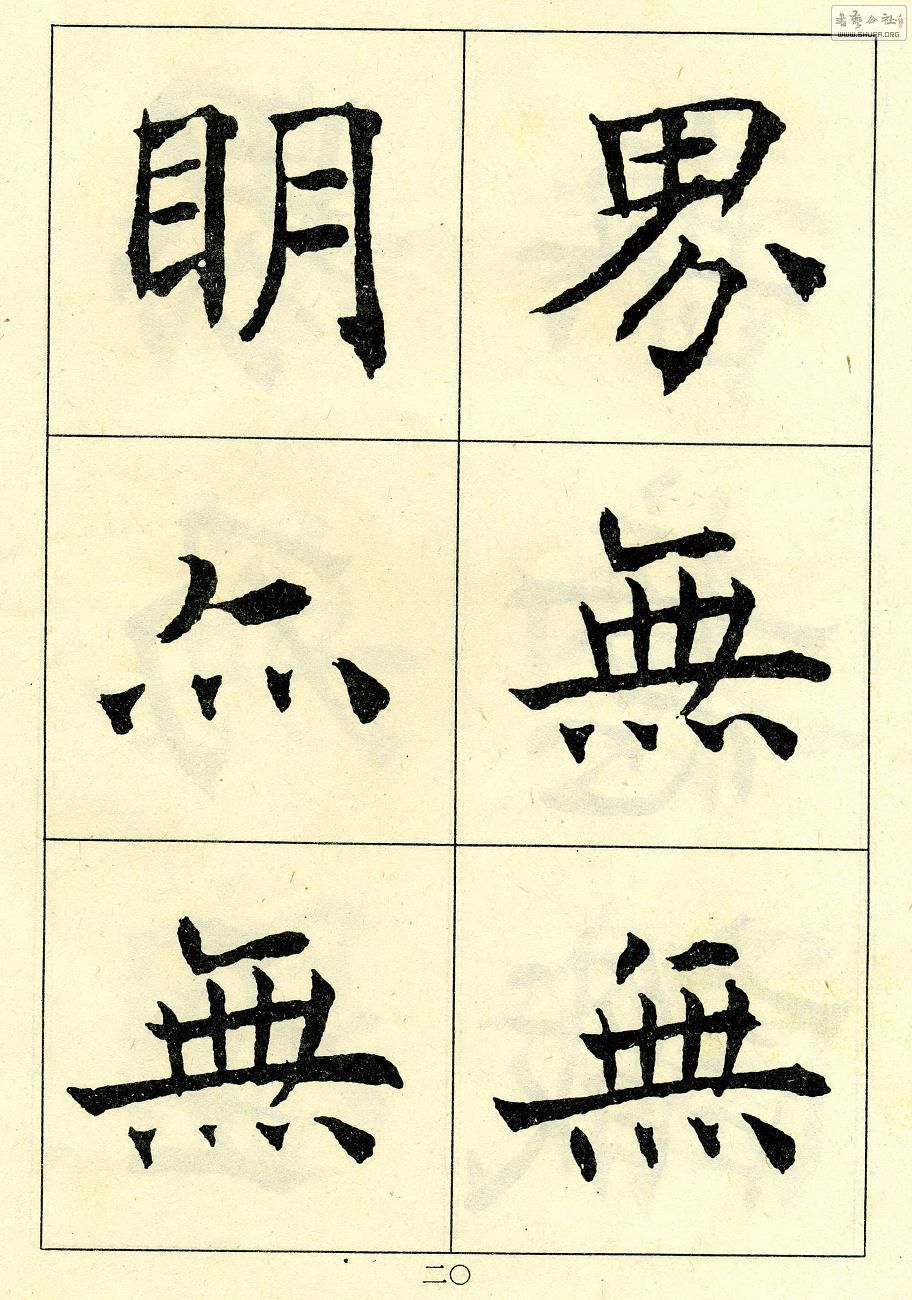 界無無
眀亦無
二〇
書藝公社
WWW.SHUFA.ORG